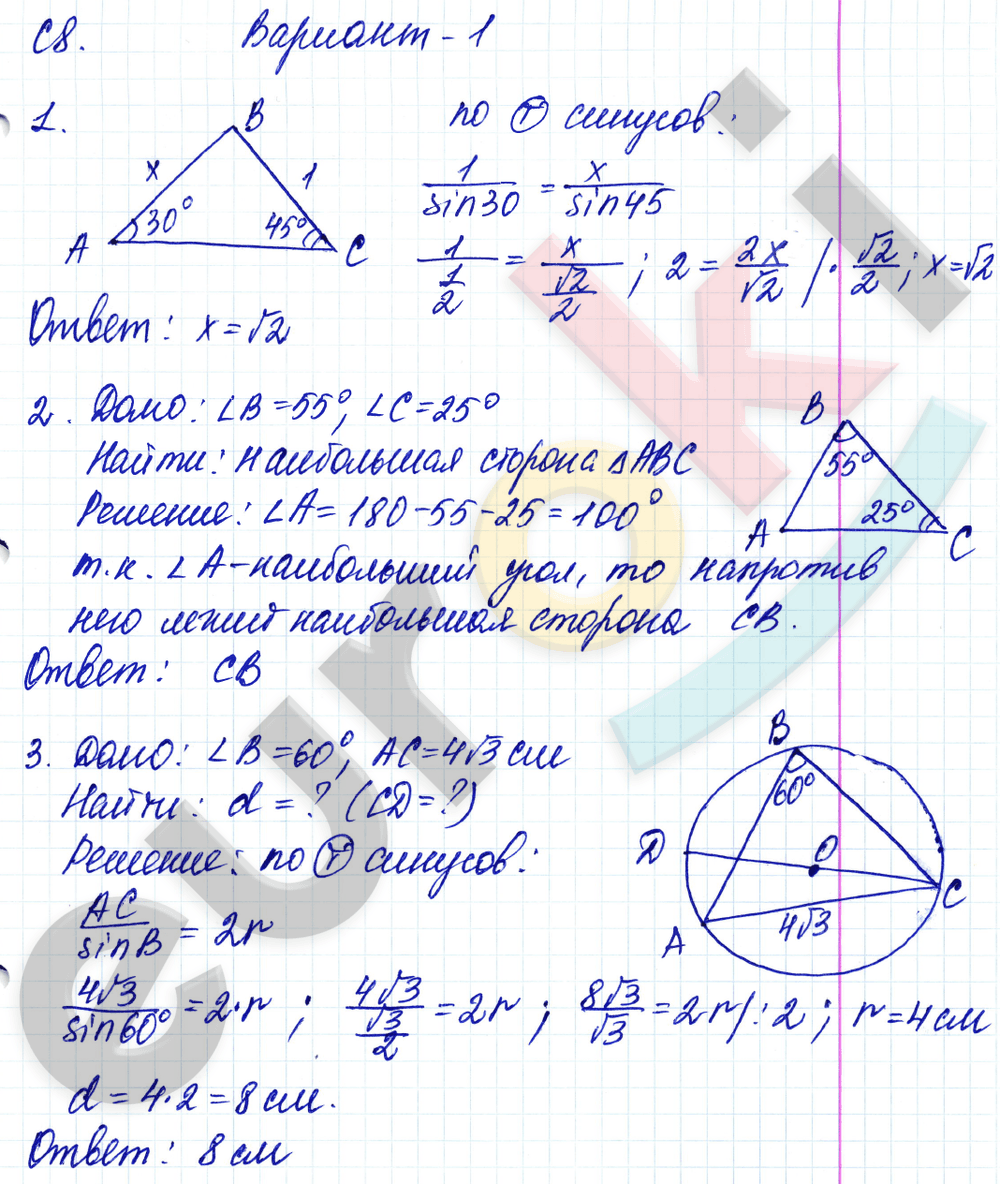 С8. Вариант - 1
1.
B
x
1
30°
45°
A
C
по Ⓣ синусов:
1/sin30 = x/sin45
1/(1/2) = x/(√2/2) ; 2 = 2x/√2 /· √2/2 ; x=√2
Ответ: x = √2
2. Дано: ∠B=55°, ∠C=25°
Найти: наибольшая сторона △ABC
Решение: ∠A = 180-55-25 = 100°
т.к. ∠A-наибольший угол, то напротив
него лежит наибольшая сторона CB.
Ответ: CB
B
55°
25°
A
C
3. Дано: ∠B=60°, AC=4√3 см
Найти: d = ? (CD=?)
Решение: по Ⓣ синусов:
AC/sinB = 2r
4√3/sin60° = 2·r ; 4√3/(√3/2) = 2r ; 8√3/√3 = 2r/:2 ; r=4см
d = 4·2 = 8 см.
Ответ: 8 см
B
60°
D
O
C
A
4√3
euroki